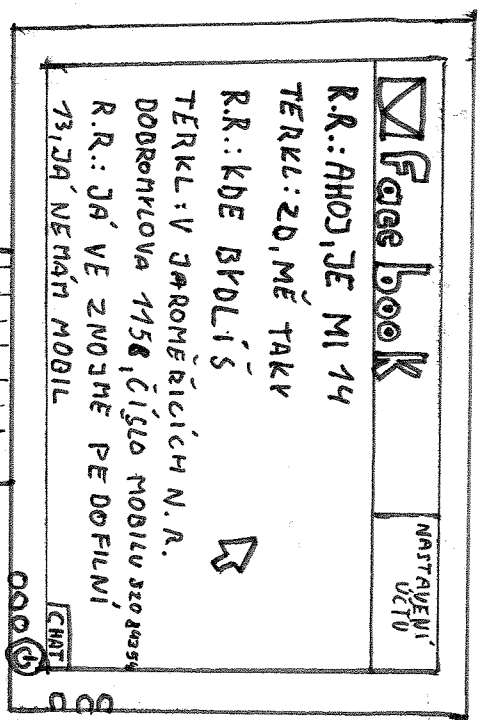 Facebook
NASTAVENÍ
ÚČTU
R.R.: AHOJ, JE MI 14
TERKL: ZD, MĚ TAKY
R.R.: KDE BYDLÍŠ
TERKL: V JAROMĚŘICÍCH N.R.
DOBROMILOVA 1158, ČÍSLO MOBILU
R.R.: JÁ VE ZNOJMĚ PEDOFILNÍ
13, JÁ NEMÁM MOBIL
CHAT